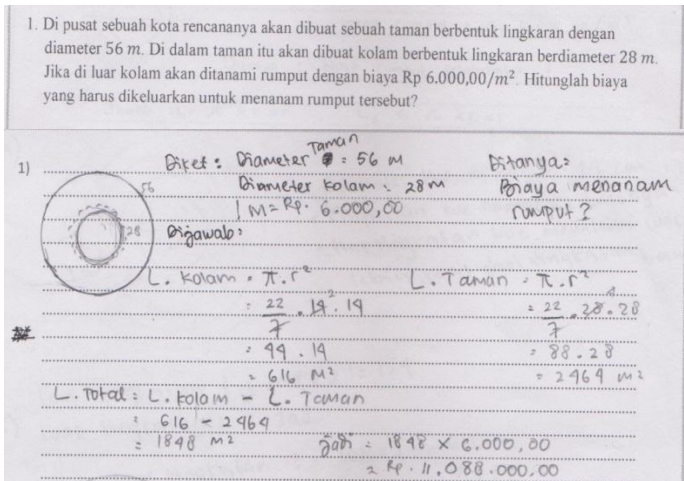 1. Di pusat sebuah kota rencananya akan dibuat sebuah taman berbentuk lingkaran dengan
diameter 56 m. Di dalam taman itu akan dibuat kolam berbentuk lingkaran berdiameter 28 m.
Jika di luar kolam akan ditanami rumput dengan biaya Rp 6.000,00/m². Hitunglah biaya
yang harus dikeluarkan untuk menanam rumput tersebut?
1)
56
28
Diket : Diameter Taman = 56 M
Diameter kolam = 28 m
1 M = Rp. 6.000,00
Ditanya =
Biaya menanam
rumput ?
Dijawab :
L. Kolam = π.r²
= 22/7 . 14 ² . 14
= 44 . 14
= 616 M²
L. Taman = π.r²
= 22/7 . 28 4 . 28
= 88 . 28
= 2464 m²
L. Total = L. kolam - L. Taman
= 616 - 2464
= 1848 m²
Jadi = 1848 × 6.000,00
= Rp. 11.088.000.00